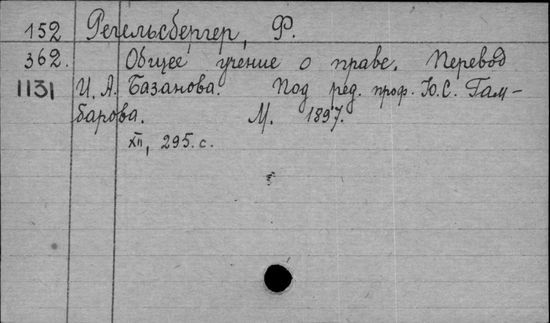 152 Регельсбергер, Ф.
362. Общее учение о праве. Перевод
1131 И. А. Базанова. Под ред. проф. Ю.С. Гам-
барова. М. 1897.
XII, 295.с.